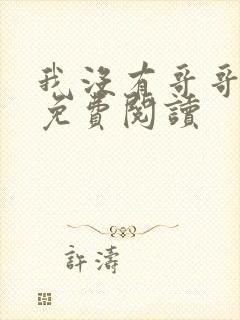 我沒有哥哥
免費閱讀
許濤